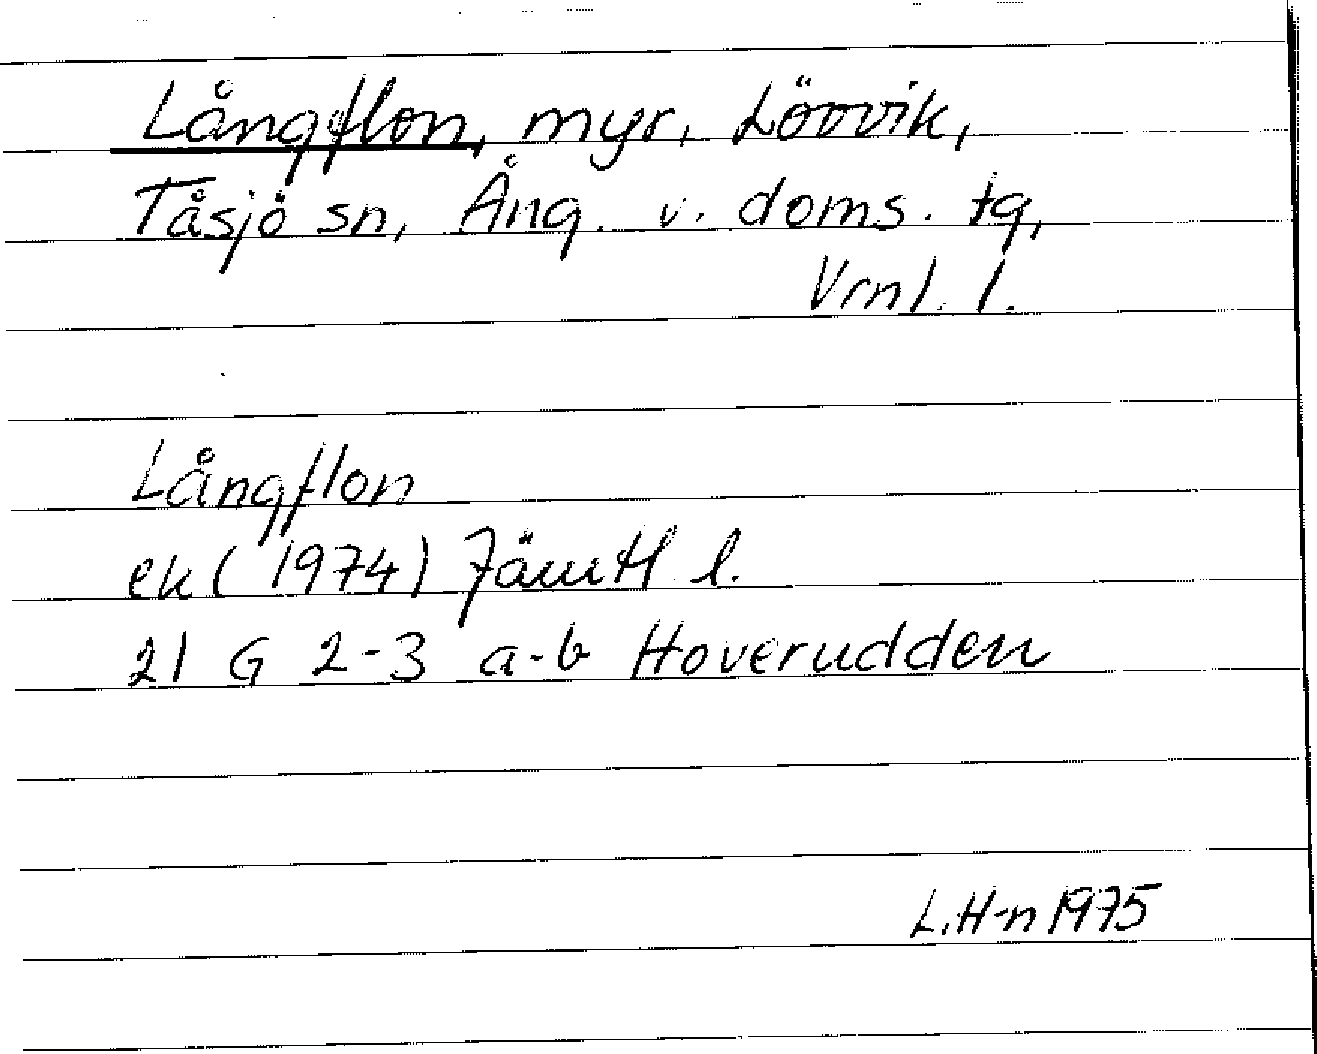 Långflon, myr, Lövvik,
Tåsjö sn, Ång. v. doms. tg,
Vrnl. l.
Långflon
ek (1974) Jämtl l.
21 G 2-3 a-b Hoverudden
L.H-n 1975